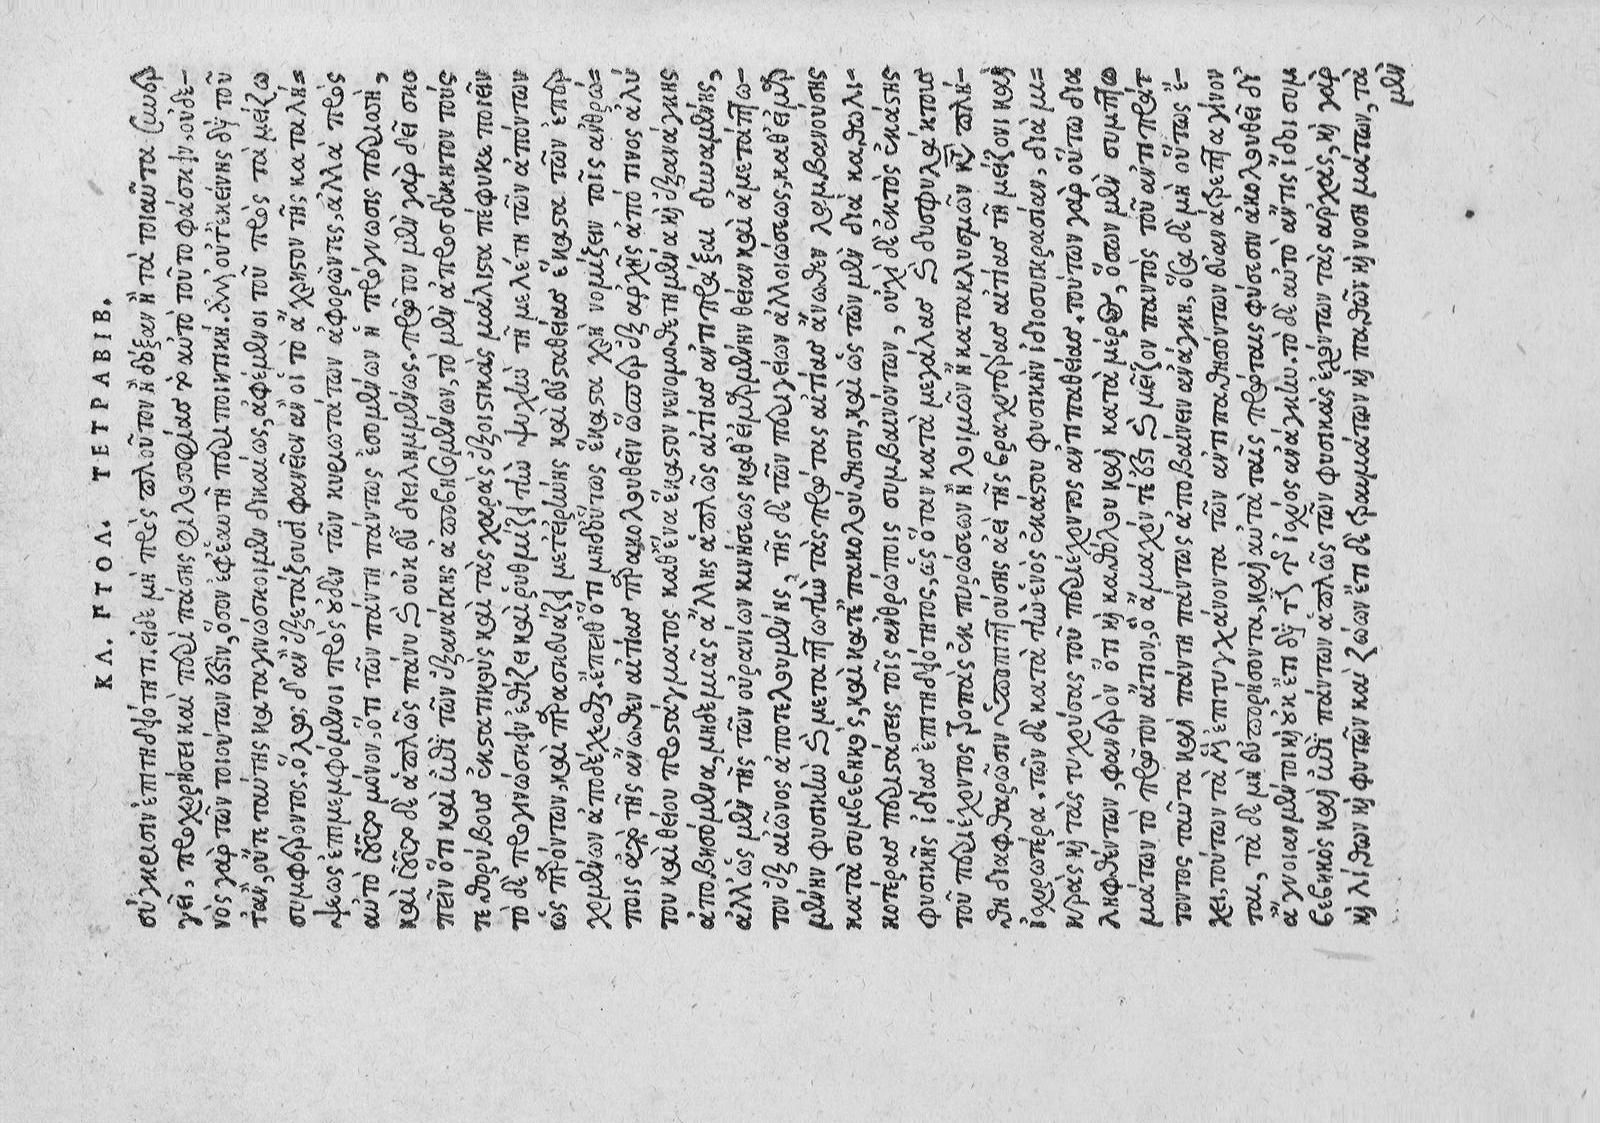 ΚΛ. ΠΤΟΛ. ΤΕΤΡΑΒΙΒ.
σύγκρισιν ἐπιτηδειότητι. εἰ δὲ μὴ πρὸς πλοῦτον ἢ δόξαν ἢ τὰ τοιαῦτα συνερ
γεῖ, προχωρήσει καὶ περὶ πάσης φιλοσοφίας τὸ αὐτὸ τοῦτο φάσκειν. οὐδε-
νὸς γὰρ τῶν τοιούτων ἐστὶν, ὅσον ἐφ' ἑαυτῇ περιποιητική. ἀλλ' οὔτ' ἐκείνης διὰ τοῦ
τ' ἂν, οὔτε ταύτης καταγινώσκοιμεν δικαίως, ἀφέμενοι τοῦ πρὸς τὰ μείζω
συμφέροντος. ὅλως δ' ἂν ἐξετάζουσι φανεῖεν ἂν οἱ τὸ ἄχρηστον τῆς καταλή=
ψεως ἐπιμεμφόμενοι πρὸς οὐδὲν τῶν κυριωτάτων ἀφορῶντες, ἀλλὰ πρὸς
αὐτὸ τοῦτο μόνον, ὅτι τῶν πάντη πάντως ἐσομένων ἡ πρόγνωσις περισσὴ,
καὶ τοῦτο δὲ ἁπλῶς πάνυ καὶ οὐκ εὖ διειλημμένως. πρῶτον μὲν γὰρ δεῖ σκο
πεῖν ὅτι καὶ ἐπὶ τῶν ἐξ ἀνάγκης ἀποβησομένων, τὸ μὲν ἀπροσδόκητον τούς
τε θορύβους ἐκστατικοὺς καὶ τὰς χαρὰς ἐξοιστικὰς μάλιστα πέφυκε ποιεῖν
τὸ δὲ προγινώσκειν ἐθίζει καὶ ῥυθμίζει τὴν ψυχὴν τῇ μελέτῃ τῶν ἀπόντων
ὡς παρόντων, καὶ παρασκευάζει μετ' εἰρήνης καὶ εὐσταθείας ἕκαστα τῶν ἐπερ
χομένων ἀποδέχεσθαι. ἔπειθ' ὅτι μηδ' οὕτως ἕκαστα χρὴ νομίζειν τοῖς ἀνθρώ=
ποις ἀπὸ τῆς ἄνωθεν αἰτίας παρακολουθεῖν ὥσπερ ἐξ ἀρχῆς ἀπό τινος ἀλύ
του καὶ θείου προστάγματος καθ' ἕνα ἕκαστον νενομοθετημένα καὶ ἐξ ἀνάγκης
ἀποβησόμενα, μηδεμιᾶς ἄλλης ἁπλῶς αἰτίας ἀντιπρᾶξαι δυναμένης,
ἀλλ' ὡς μὲν τῆς τῶν οὐρανίων κινήσεως καθ' εἱμαρμένην θείαν καὶ ἀμετάπτω-
τον ἐξ αἰῶνος ἀποτελουμένης, τῆς δὲ τῶν περιγείων ἀλλοιώσεως, καθ' εἱμαρ
μένην φυσικὴν καὶ μεταπτωτὴν τὰς πρώτας αἰτίας ἄνωθεν λαμβανούσης
κατὰ συμβεβηκὸς, καὶ κατ' ἐπακολούθησιν, καὶ ὡς τῶν μὲν διὰ καθολι=
κωτέρας περιστάσεις τοῖς ἀνθρώποις συμβαινόντων, οὐχὶ δὲ ἐκ τῆς ἑκάστης
φυσικῆς ἰδίας ἐπιτηδειότητος, ὡς ὅταν κατὰ μεγάλας καὶ δυσφυλάκτους
τοῦ περιέχοντος τροπὰς ἐκ πυρώσεων ἢ λοιμῶν ἢ κατακλυσμῶν κατὰ πλή-
θη διαφθαρῶσιν ὑποπιπτούσης ἀεὶ τῆς βραχυτέρας αἰτίας τῇ μείζονι καὶ
ἰσχυροτέρᾳ. τῶν δὲ κατὰ τὴν ἑνὸς ἑκάστου φυσικὴν ἰδιοσυγκρασίαν, διὰ μι=
κρὰς καὶ τὰς τυχούσας τοῦ περιέχοντος ἀντιπαθείας. τούτων γὰρ οὕτω δια
ληφθέντων, φανερὸν ὅτι καὶ καθόλου καὶ κατὰ μέρος, ὅσων μὲν συμπτω
μάτων τὸ πρῶτον αἴτιον, ὃ ἄμαχόν τέ ἐστι καὶ μεῖζον παντὸς τοῦ ἀντιπράτ
τοντος ταῦτα καὶ πάντη πάντως ἀποβαίνειν ἀνάγκη, ὅσα δὲ μὴ οὕτως ἔ-
χει, τούτων τὰ μὲν ἐπιτυγχάνοντα τῶν ἀντιπαθησόντων εὐανάτρεπτα γίνον
ται, τὰ δὲ μὴ εὐπορήσοντα, καὶ αὐτὰ ταῖς πρώταις φύσεσιν ἀκολουθεῖ δι'
ἄγνοιαν μέντοι καὶ οὐκ ἔτι διὰ τὴν τῆς ἰσχύος ἀνάγκην. τὸ δὲ αὐτὸ ἄν τις ἴδοι συμ
βεβηκὸς καὶ ἐπὶ πάντων ἁπλῶς τῶν φυσικὰς ἐχόντων τὰς ἀρχὰς, καὶ γὰρ
καὶ λίθων καὶ φυτῶν καὶ ζώων ἔτι δὲ τραυμάτων καὶ παθῶν καὶ νοσημάτων, τὰ
μὲν